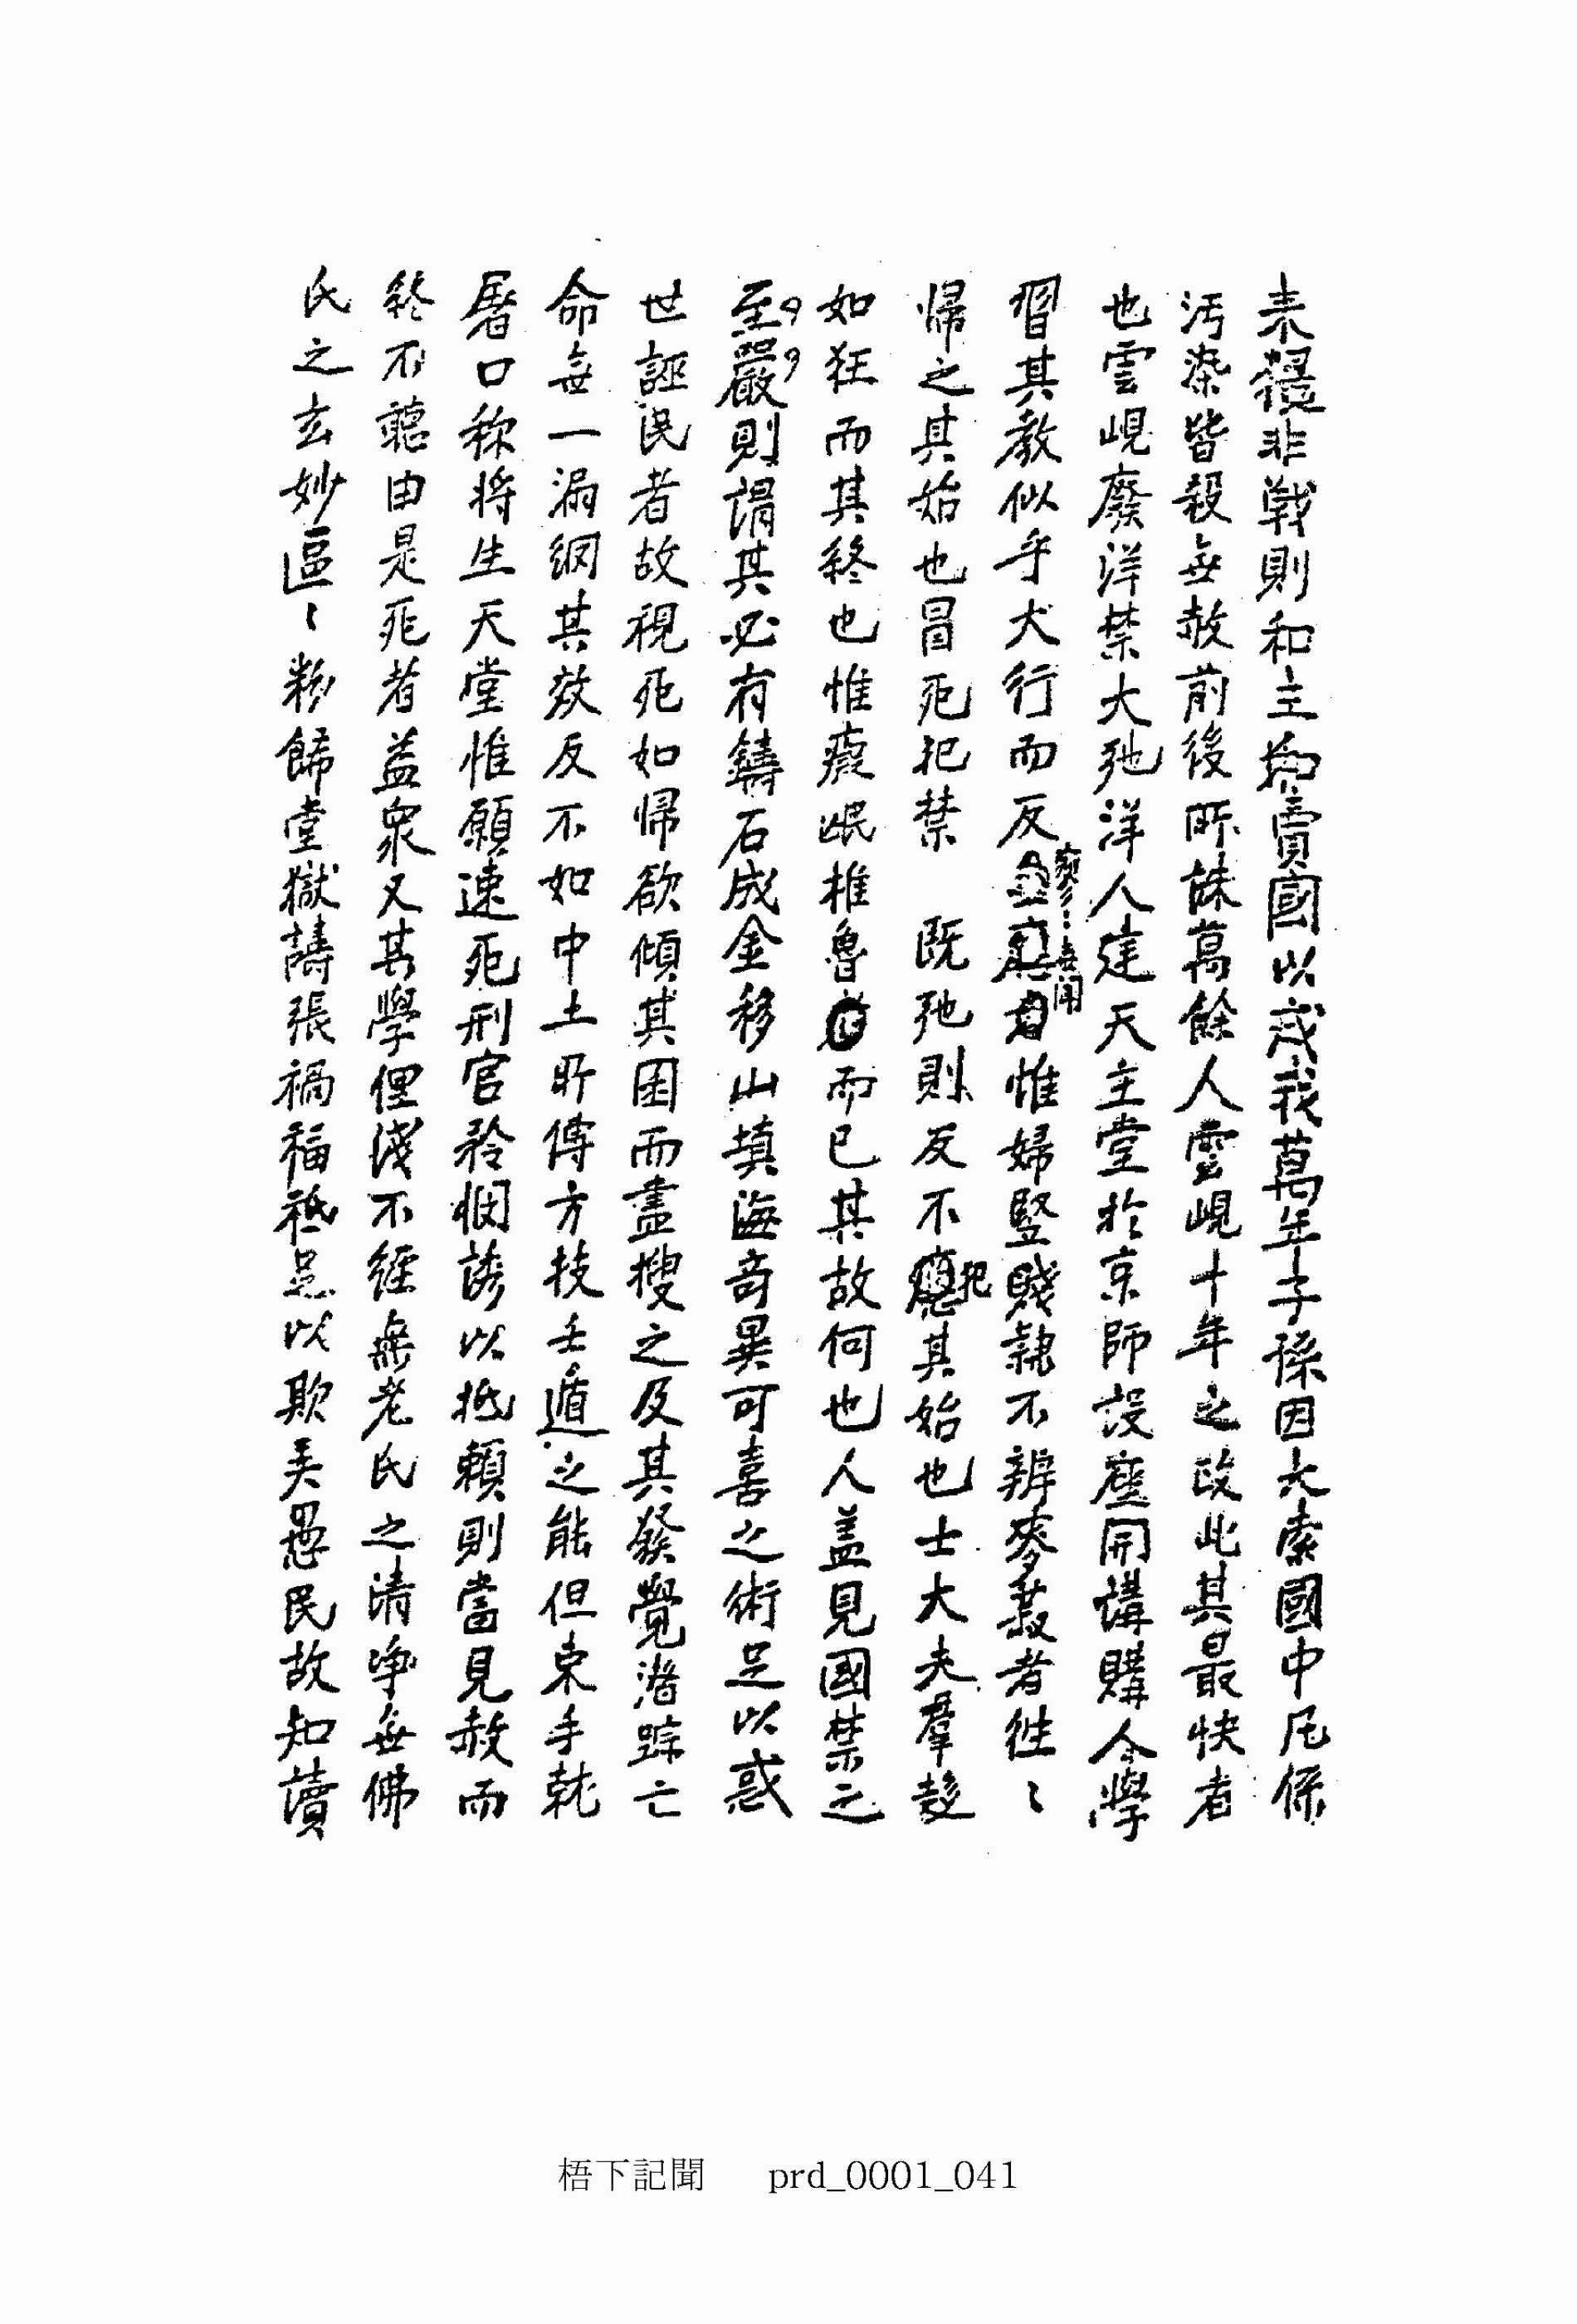 来侵非戰則和主和賣國以戒我萬年子孫因大索國中凡係
汚染皆殺無赦前後所誅萬餘人雲峴十年之政此其最快者
也雲峴廢洋禁大弛洋人建天主堂於京師設座開講購人學
習其教似乎大行而反寥〻無聞惟婦竪賤隷不辨麥菽者往〻
帰之其始也冒死犯禁 既弛則反不犯其始也士大夫羣趍
如狂而其終也惟癡氓椎魯而已其故何也人盖見國禁之
至嚴則謂其必有鑄石成金移山填海奇異可喜之術足以惑
世誣民者故視死如帰欲傾其困而盡搜之及其發覺潜踪亡
命無一漏網其效反不如中土所傳方技壬遁之能但束手就
屠口称將生天堂惟願速死刑官矜憫誘以抵賴則當見赦而
終不聽由是死者益衆又其學俚淺不經無老氏之清净無佛
氏之玄妙區〻粉餙堂獄譸張禍福秪足以欺美愚民故知讀
梧下記聞 prd_0001_041